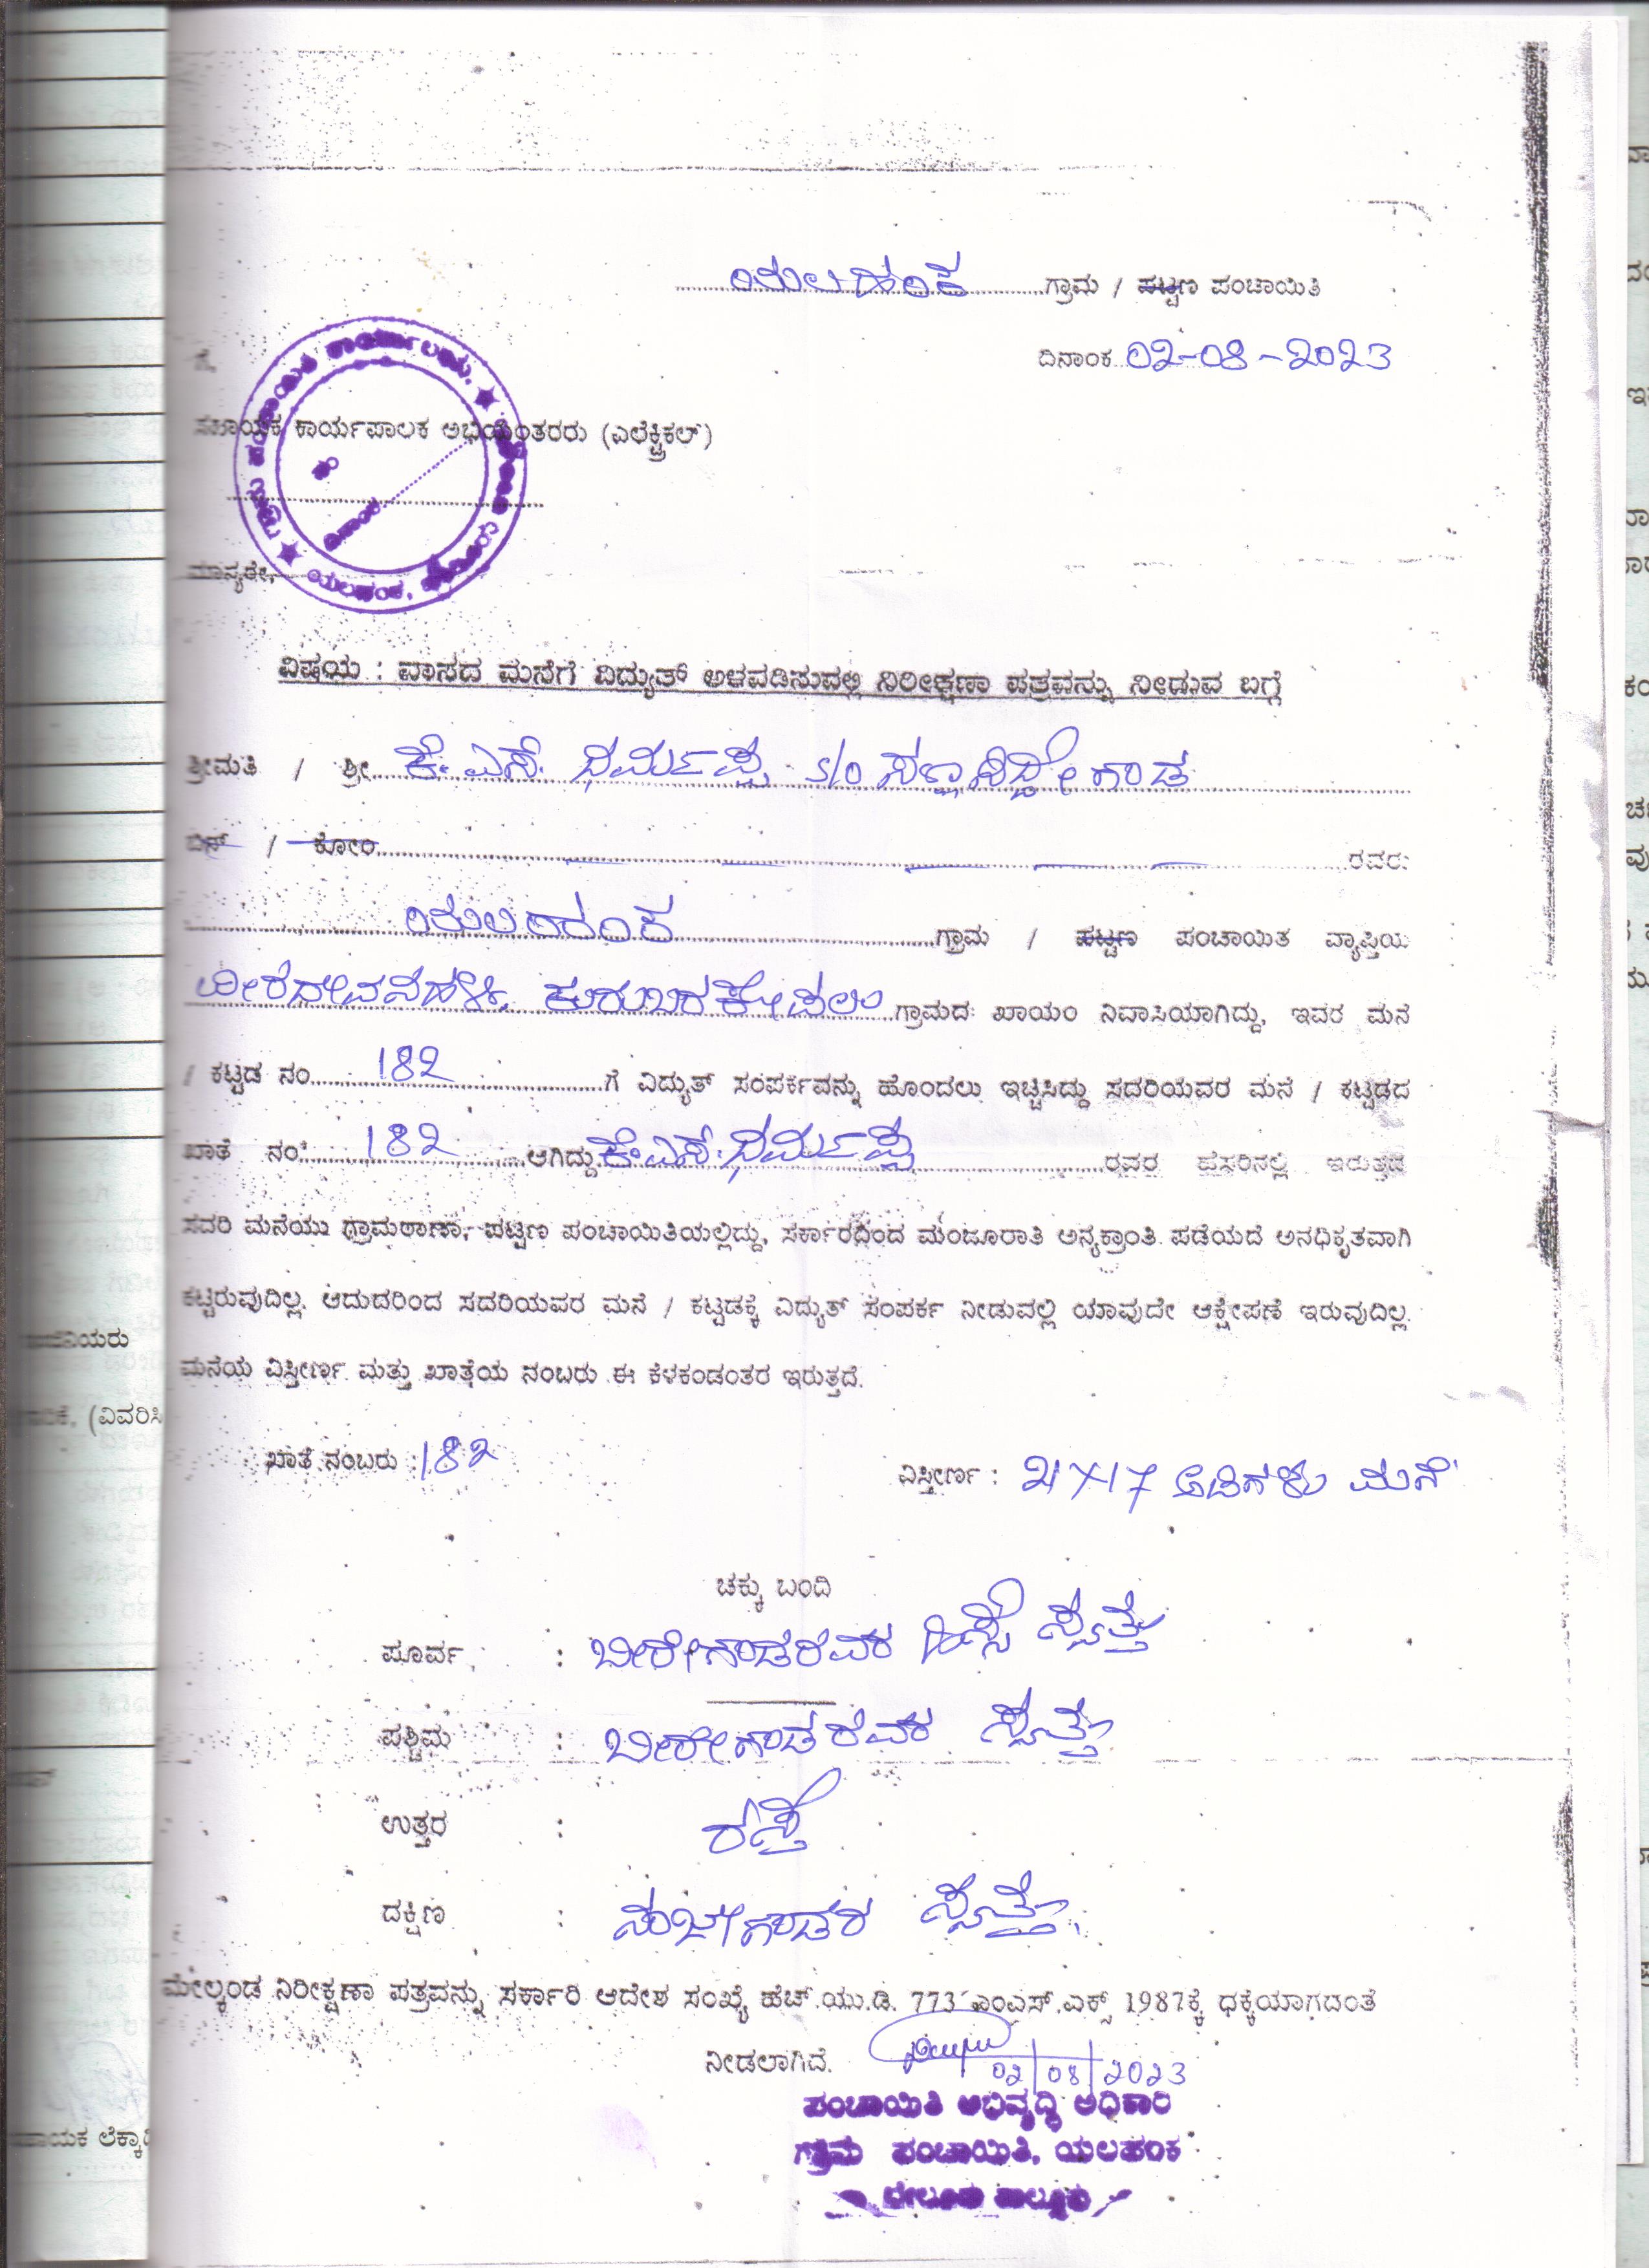 ಯಲಹಂಕ ಗ್ರಾಮ / ಪಟ್ಟಣ ಪಂಚಾಯಿತಿ
ದಿನಾಂಕ 02-08-2023
ಗೆ,
ಸಹಾಯಕ ಕಾರ್ಯಪಾಲಕ ಅಭಿಯಂತರರು (ಎಲೆಕ್ಟ್ರಿಕಲ್)
ಮಾನ್ಯರೇ,
ವಿಷಯ : ವಾಸದ ಮನೆಗೆ ವಿದ್ಯುತ್ ಅಳವಡಿಸುವಲ್ಲಿ ನಿರೀಕ್ಷಣಾ ಪತ್ರವನ್ನು ನೀಡುವ ಬಗ್ಗೆ
ಶ್ರೀಮತಿ / ಶ್ರೀ ಕೆ.ಎಸ್. ಧರ್ಮಪ್ಪ S/o ಸಣ್ಣಸಿದ್ದೇಗೌಡ
ಬಿನ್ / ಕೋಂ ರವರು
ಯಲಹಂಕ ಗ್ರಾಮ / ಪಟ್ಟಣ ಪಂಚಾಯಿತ ವ್ಯಾಪ್ತಿಯ
ಗ್ರಾಮದ ಖಾಯಂ ನಿವಾಸಿಯಾಗಿದ್ದು, ಇವರ ಮನೆ
/ ಕಟ್ಟಡ ನಂ 182 ಗೆ ವಿದ್ಯುತ್ ಸಂಪರ್ಕವನ್ನು ಹೊಂದಲು ಇಚ್ಚಸಿದ್ದು ಸದರಿಯವರ ಮನೆ / ಕಟ್ಟಡದ
ಖಾತೆ ನಂ 182 ಆಗಿದ್ದು ಕೆ.ಎಸ್.ಧರ್ಮಪ್ಪ ರವರ ಹೆಸರಿನಲ್ಲಿ ಇರುತ್ತದೆ
ಸದರಿ ಮನೆಯು ಗ್ರಾಮಠಾಣಾ, ಪಟ್ಟಣ ಪಂಚಾಯಿತಿಯಲ್ಲಿದ್ದು, ಸರ್ಕಾರದಿಂದ ಮಂಜೂರಾತಿ ಅನ್ಯಕ್ರಾಂತಿ ಪಡೆಯದೆ ಅನಧಿಕೃತವಾಗಿ
ಕಟ್ಟಿರುವುದಿಲ್ಲ. ಆದುದರಿಂದ ಸದರಿಯವರ ಮನೆ / ಕಟ್ಟಡಕ್ಕೆ ವಿದ್ಯುತ್ ಸಂಪರ್ಕ ನೀಡುವಲ್ಲಿ ಯಾವುದೇ ಆಕ್ಷೇಪಣೆ ಇರುವುದಿಲ್ಲ.
ಮನೆಯ ವಿಸ್ತೀರ್ಣ ಮತ್ತು ಖಾತೆಯ ನಂಬರು ಈ ಕೆಳಕಂಡಂತರ ಇರುತ್ತದೆ.
ಖಾತೆ ನಂಬರು : 182 ವಿಸ್ತೀರ್ಣ : 21×17 ಅಡಿಗಳು ಮನೆ
ಚಕ್ಕು ಬಂದಿ
ಪೂರ್ವ : ಬೀರೇಗೌಡರವರ ಹಿಸ್ಸೆ ಸ್ವತ್ತು
ಪಶ್ಚಿಮ : ಬೀರೇಗೌಡರವರ ಸ್ವತ್ತು
ಉತ್ತರ : ರಸ್ತೆ
ದಕ್ಷಿಣ : ಸ್ವತ್ತು
ಮೇಲ್ಕಂಡ ನಿರೀಕ್ಷಣಾ ಪತ್ರವನ್ನು ಸರ್ಕಾರಿ ಆದೇಶ ಸಂಖ್ಯೆ ಹೆಚ್.ಯು.ಡಿ. 773 ಎಂಎಸ್.ಎಕ್ಸ್ 1987ಕ್ಕೆ ಧಕ್ಕೆಯಾಗದಂತೆ
ನೀಡಲಾಗಿದೆ.
02/08/2023
ಪಂಚಾಯಿತಿ ಅಭಿವೃದ್ಧಿ ಅಧಿಕಾರಿ
ಗ್ರಾಮ ಪಂಚಾಯಿತಿ, ಯಲಹಂಕ
ಬೇಲೂರು ತಾಲ್ಲೂಕು